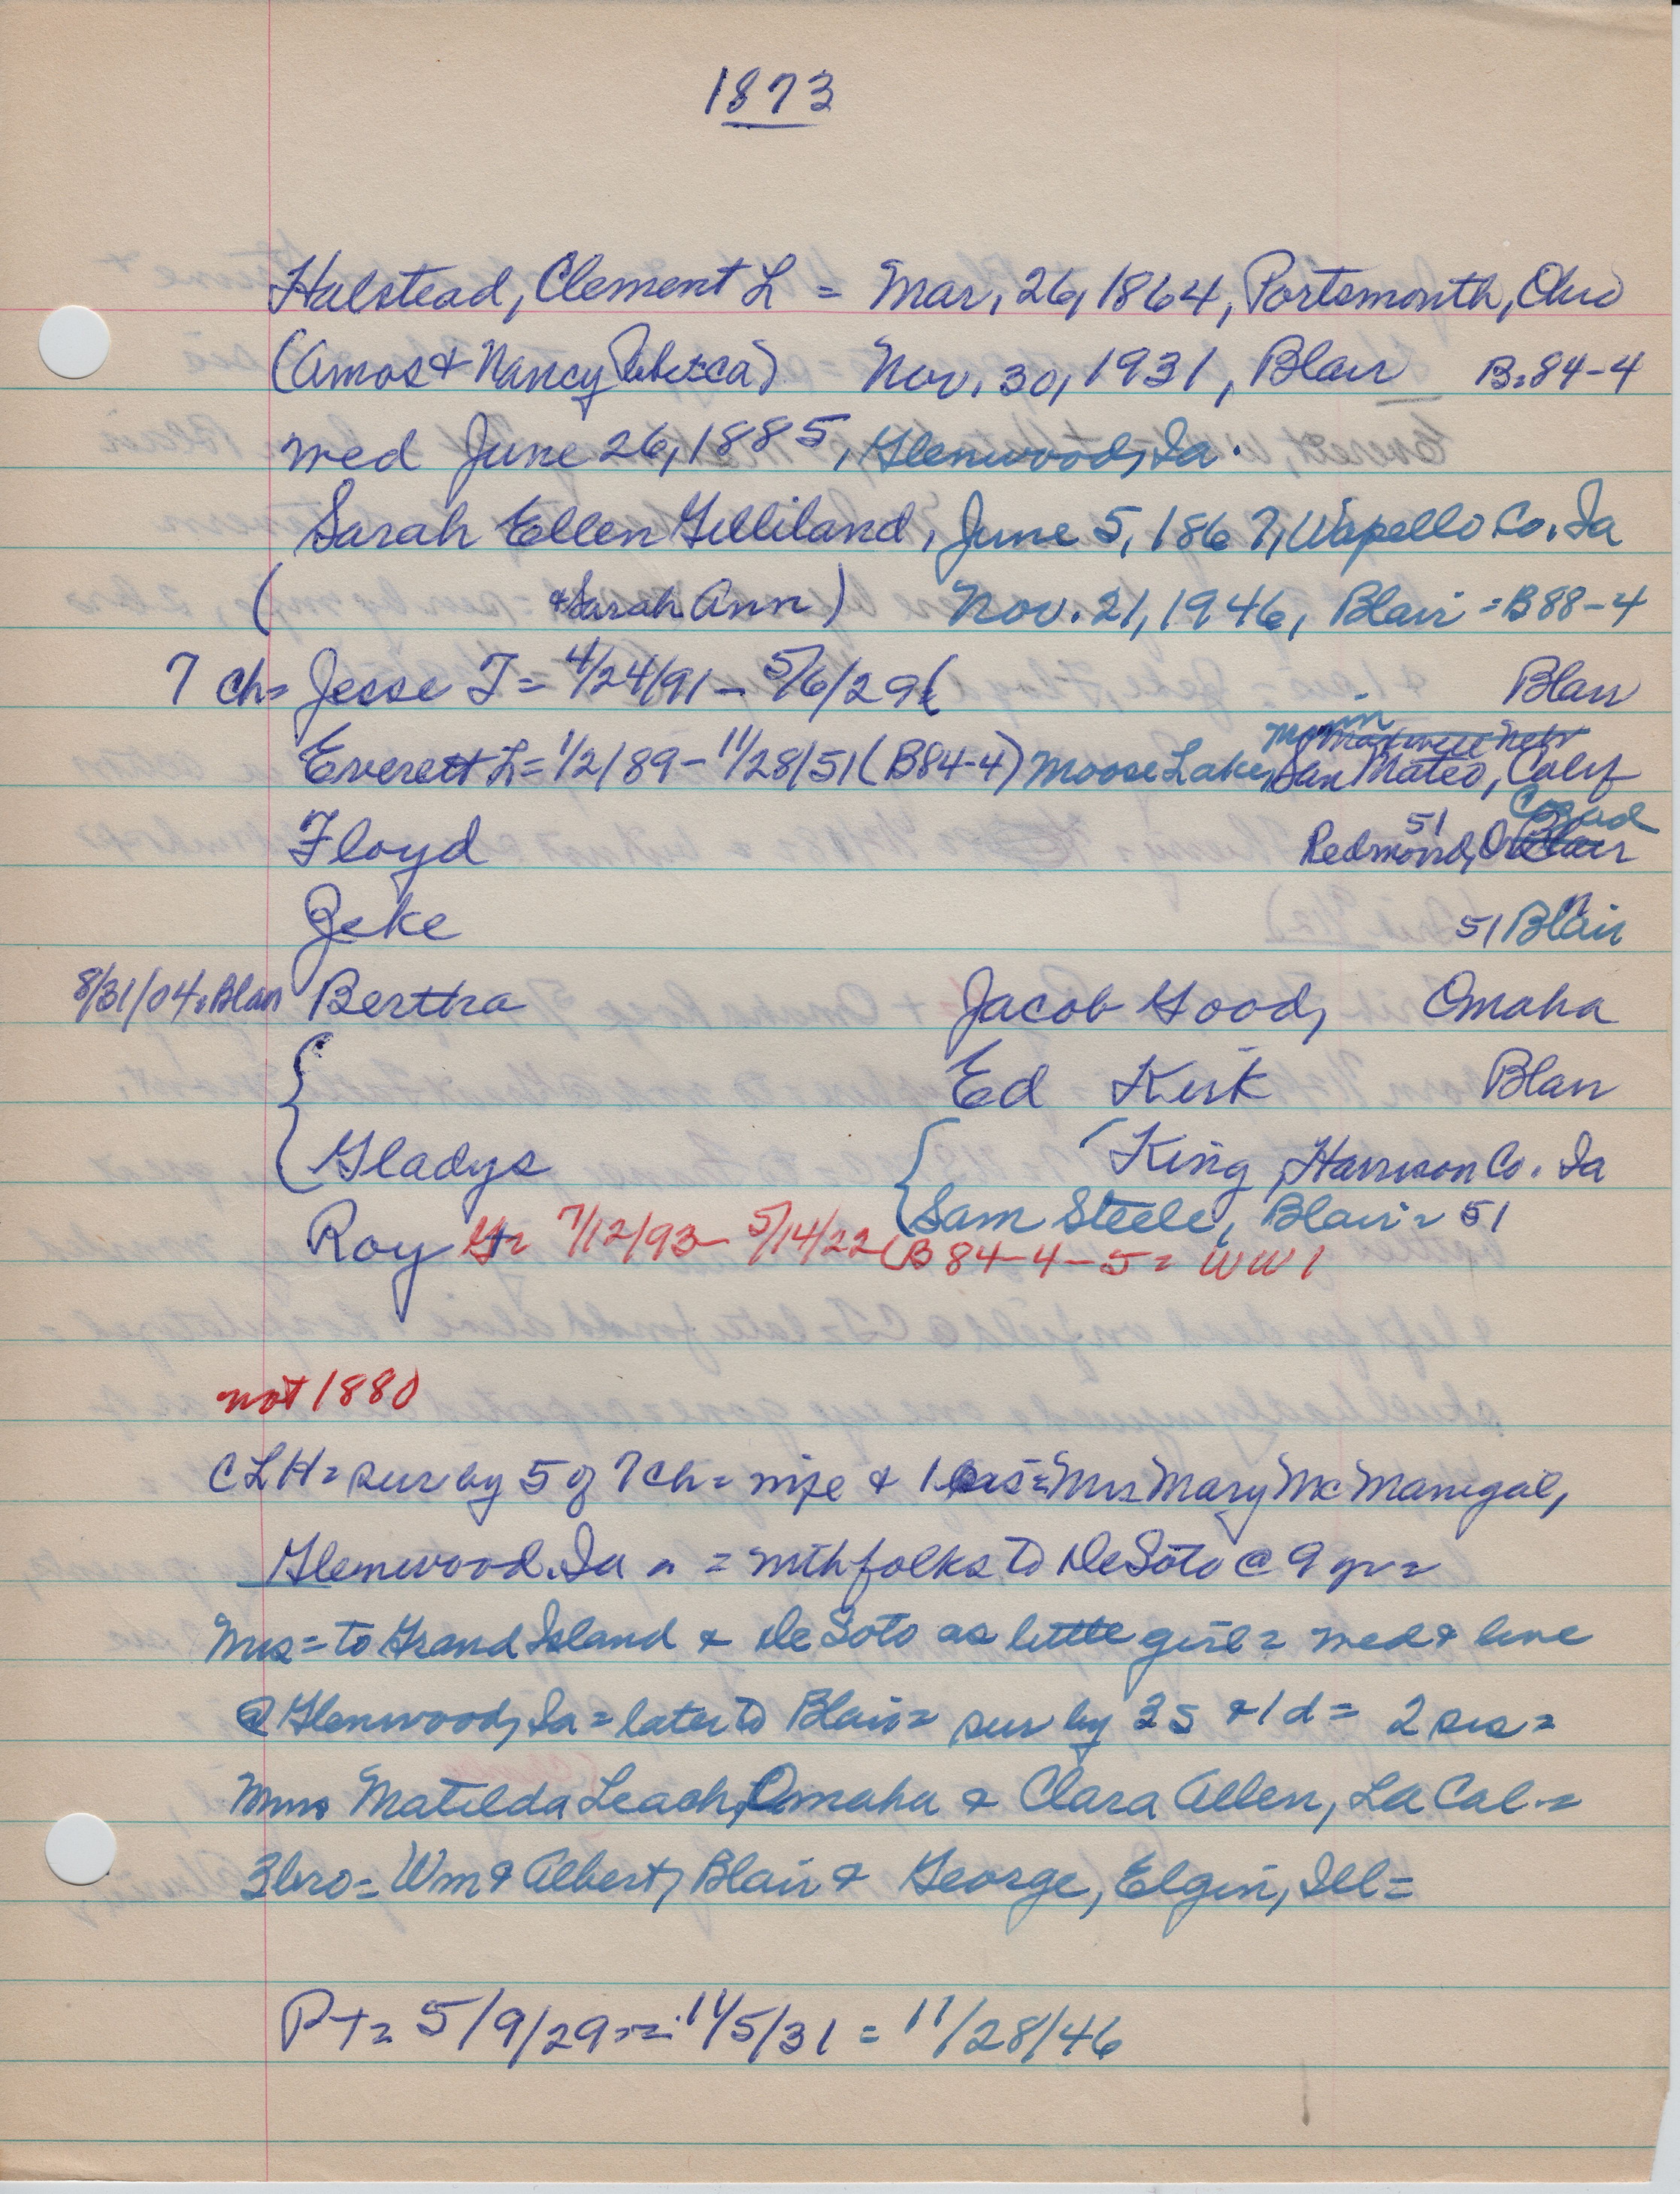 1873
Halstead, Clement L = Mar, 26, 1864, Portsmouth, Ohio
(Amos & Nancy Rebecca) Nov, 30, 1931, Blair B=84-4
med June 26, 1885, Glenwood, Ia.
Sarah Ellen Gilliland, June 5, 1867, Wapello Co. Ia
( & Sarah Ann) Nov. 21, 1946, Blair = B88-4
7 ch= Jesse T = 4/24/91 - 5/6/29 ( Blair
Minn
Everett L = 1/2/89 - 11/28/51 (B84-4) Moose Lake, San Mateo, Calif
Cozad
Floyd 51 Redmond, Ore Blair
Zeke 51 Blair
8/31/04, Blair Bertha Jacob Good, Omaha
{ Ed Kirk Blair
Gladys { King, Harrison Co. Ia
Sam Steele, Blair = 51
Roy G= 7/12/93 - 5/14/22 (B84-4-5= WW1
not 1880
CLH= sur by 5 of 7 ch = wife & 1 sis= Mrs Mary McManigal,
Glenwood, Ia = with folks to DeSoto @ 9 yr =
Mrs = to Grand Island & DeSoto as little girl = med & live
@ Glenwood, Ia = later to Blair = sur by 3 s & 1 d = 2 sis =
Mmes Matilda Leach, Omaha & Clara Allen, La Cal =
3 bro = Wm & Albert, Blair & George, Elgin, Ill =
PT= 5/9/29 = 11/5/31 = 11/28/46